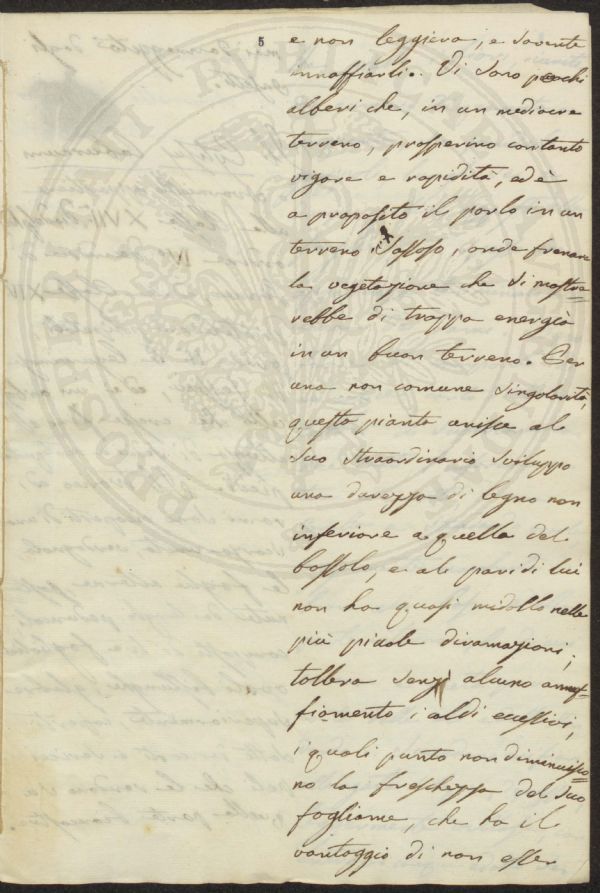 5
e non leggiera, e sovente
innaffiarli. Vi sono pochi
alberi che, in un mediocre
terreno, prosperino con tanto
vigore e rapidità, ed è
a proposito il porlo in un
terreno sassoso, onde frenare
la vegetazione che si mostre=
rebbe di troppa energia
in un buon terreno. Per
una non comune singolarità,
questa pianta unisce al
suo straordinario sviluppo
una durezza di legno non
inferiore a quella del
bossolo, e al pari di lui
non ha quasi midollo nelle
più picole diramazioni;
tollera senza alcuno
i caldi eccessivi,
i quali punto non diminuisco=
no la freschezza del suo
fogliame, che ha il
vantaggio di non esser